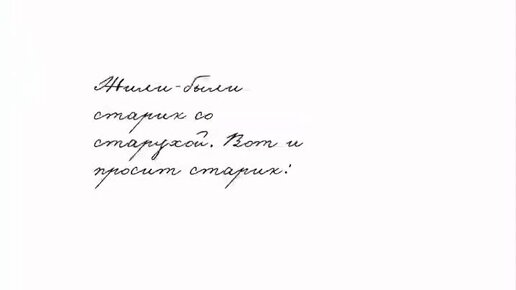 Жили-были
старик со
старухой. Вот и
просит старик: